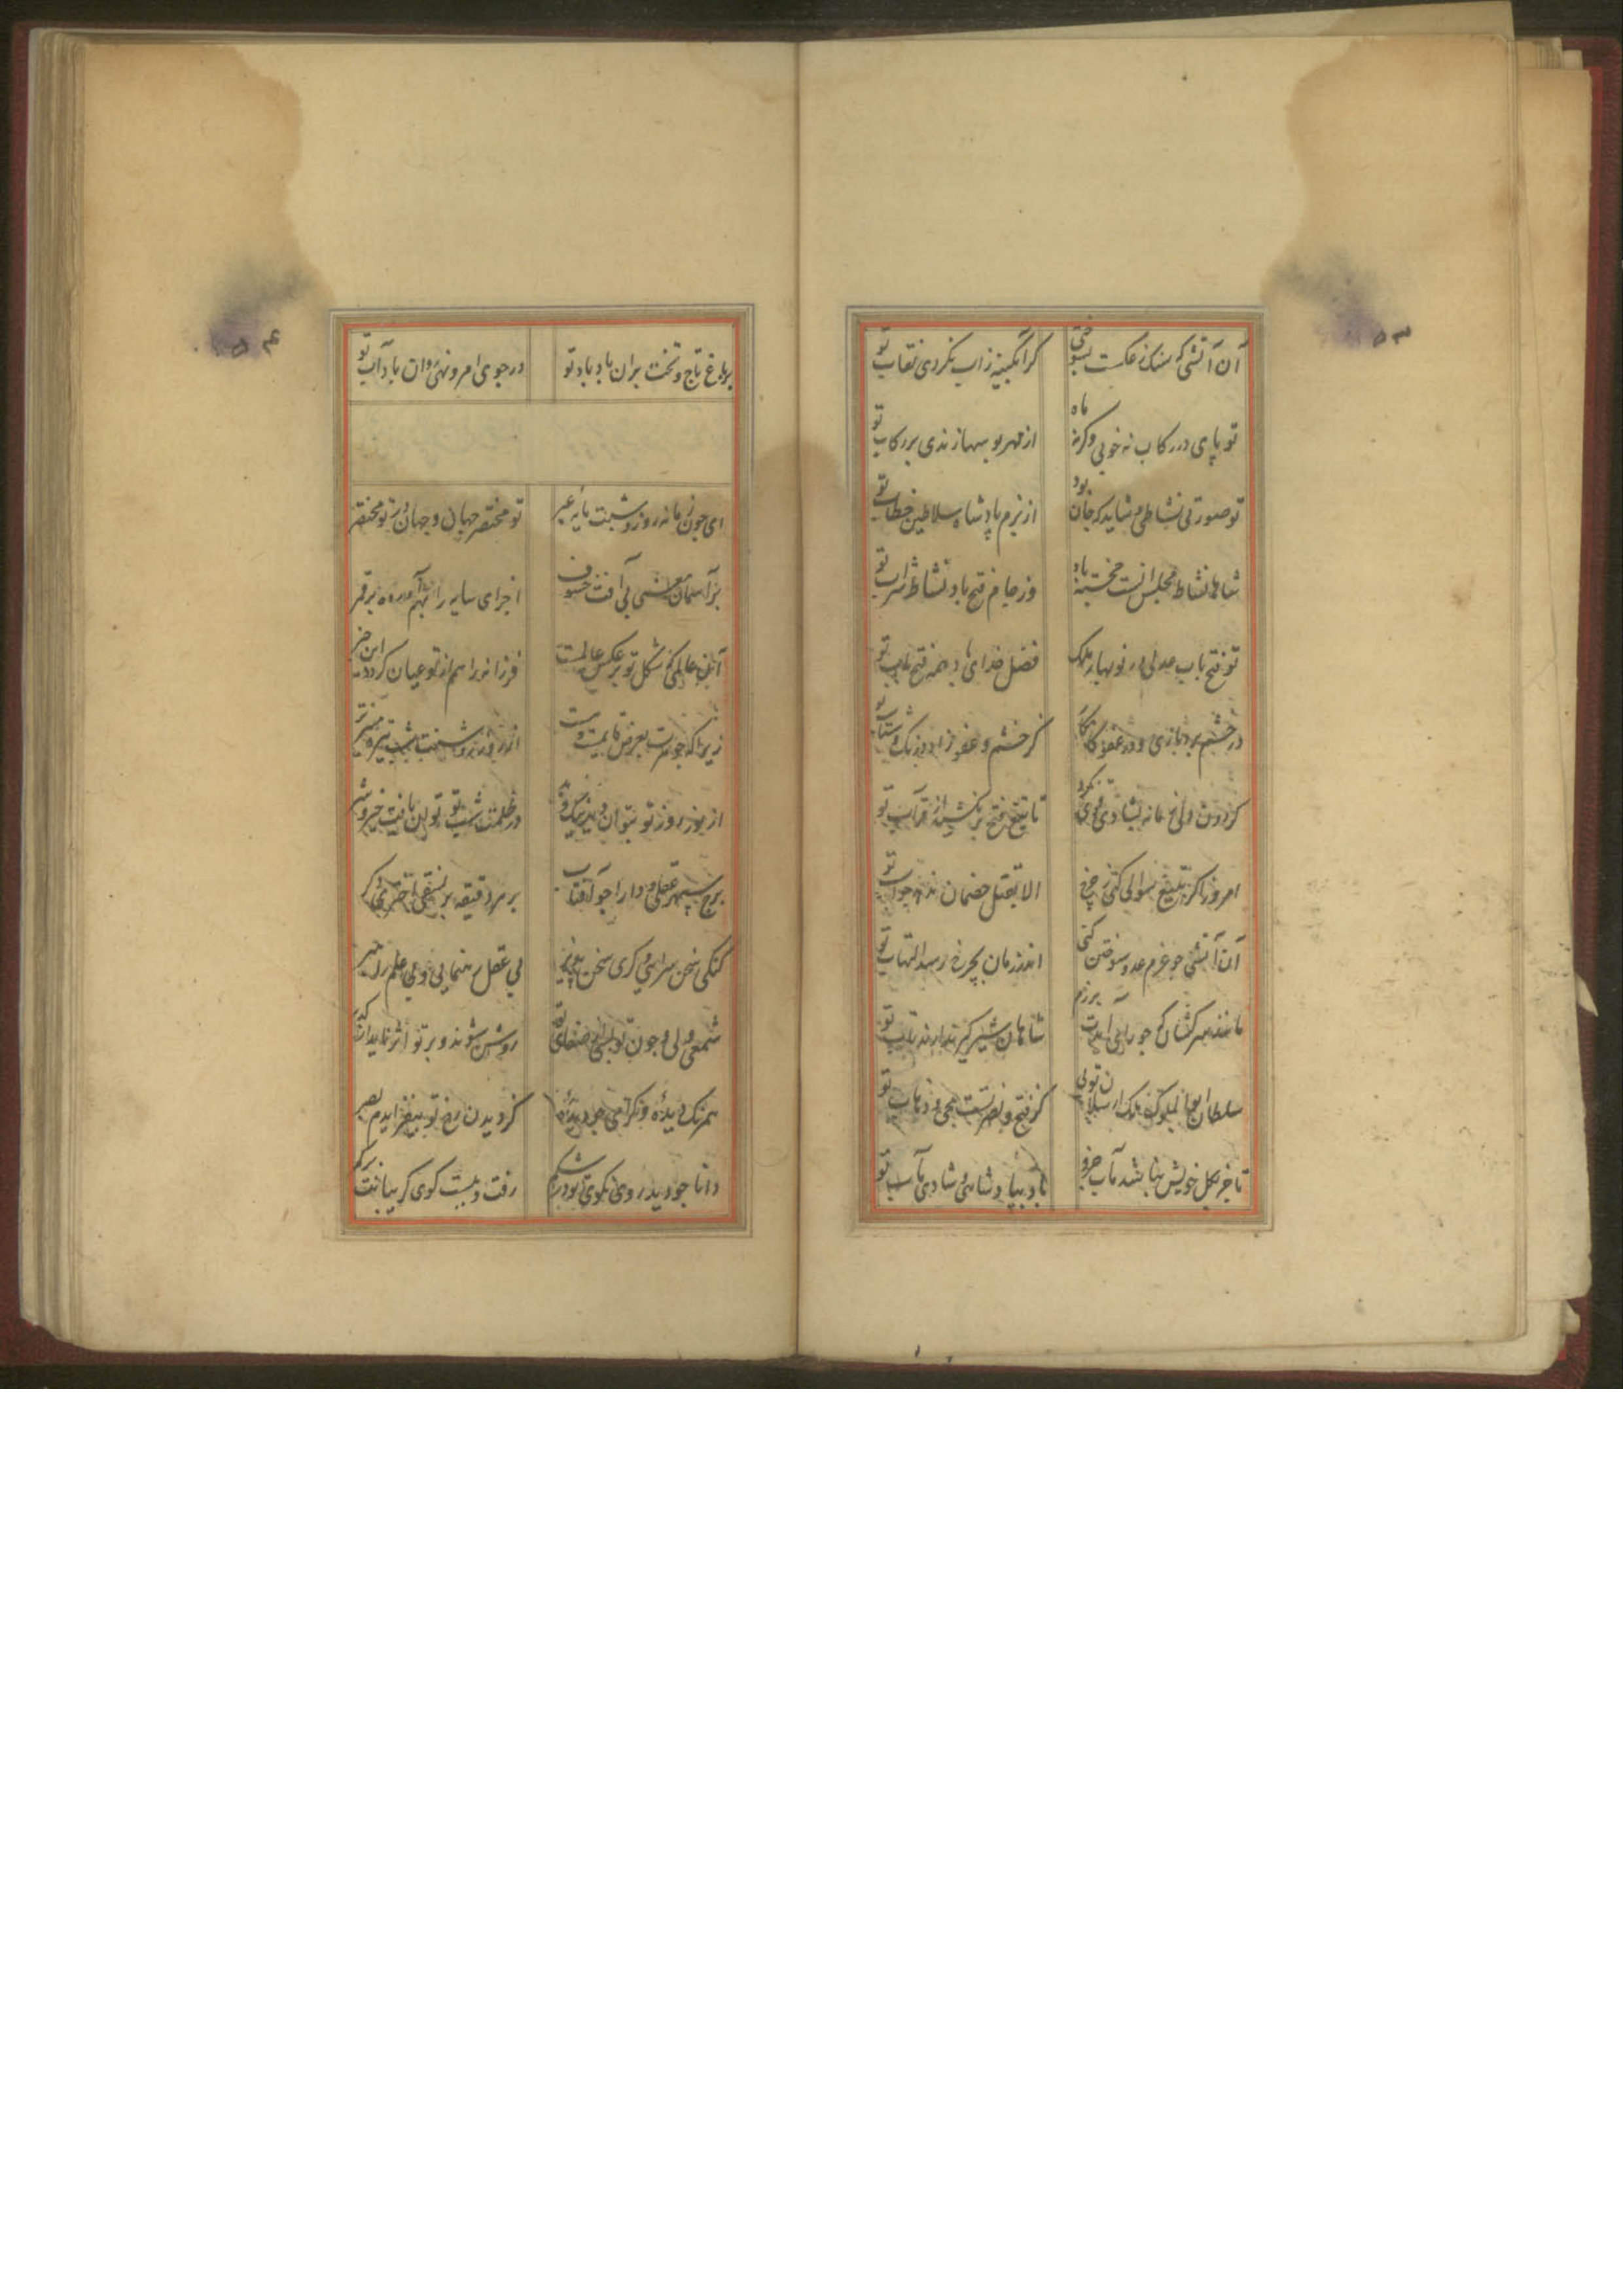 آن آتشی که سنک ز عکست بسوختی
کر آبکینه ز آب نکردی نقاب تو
تو پای در رکاب نه خوبی وکرنه ماه
از مهر بوسها زندی بر رکاب تو
تو صورتی نشاطی و شاید که جان بود
از بزم پادشاه سلاطین خطاب تو
شاها نشاط مجلس انست خجسته باد
وز جام فتح باد نشاط شراب تو
تو فتح باب عدلی در نوبهار ملک
فضل خدای باد همه فتح باب تو
در خشم بردباری و در عفو
کر خشم و عفو زاد درنک و شتاب تو
کردون ولی خانه بشادی تهی نکرد
تا تیغ فتح بر نکشید از قراب تو
امروز اکر بتیغ سوالی کنی ز چرخ
الا بقتل خصمان ندهد جواب تو
آن آتشی جو عزم عدو سوختن کنی
اندر زمان بچرخ رسد التهاب تو
مانند سرکشان جو برآیی برزم
شاهان شیر کیر ندارند تاب تو
سلطان ابوالملوک ملک ارسلان تویی
کز فتح و نصرتست مجی و ذهاب تو
تا جز بکل خویش نباشد مآب جزو
بادا بپادشاهی و شادی مآب تو
بر باغ تاج و تخت بران باد باد تو
در جوی امر و نهی روان باد آب تو
ای جون زمانه روز و شبت مایه عبر
تو مختصر جهان و جهان در تو مختصر
بر آسمان حسنی بی آفت خسوف
اجزای سایه را بهم آورده بر قمر
آن عالمی که شکل تو بر عکس عالمست
فرزانه را هم از تو عیان کردد این خبر
زیرا که جوهرت بعرض قایمست
از روز روشنت شب تیره منیرتر
از نور روز تو نتوان دید نیک و بد
در ظلمت شب تو توان یافت خیر و شر
برج سپهر عقلی و دارا جو آفتاب
بر هر دقیقه بر نسقی اختری دکر
کنکی سخن سرای و کری سخن پذیر
بی عقل رهنمایی و بی علم راهبر
شمعی ولی جون تو بپیش ضیای تو
روشن شوند و بر تو اثر ناید از کدر
همرنک دیده و کرامی جو دیده
کز دیدن رخ تو بیفزایدم بصر
دانا جو دید روی نکوی تو در شکم
رفت و ببست کوی کریبانت بر کمر